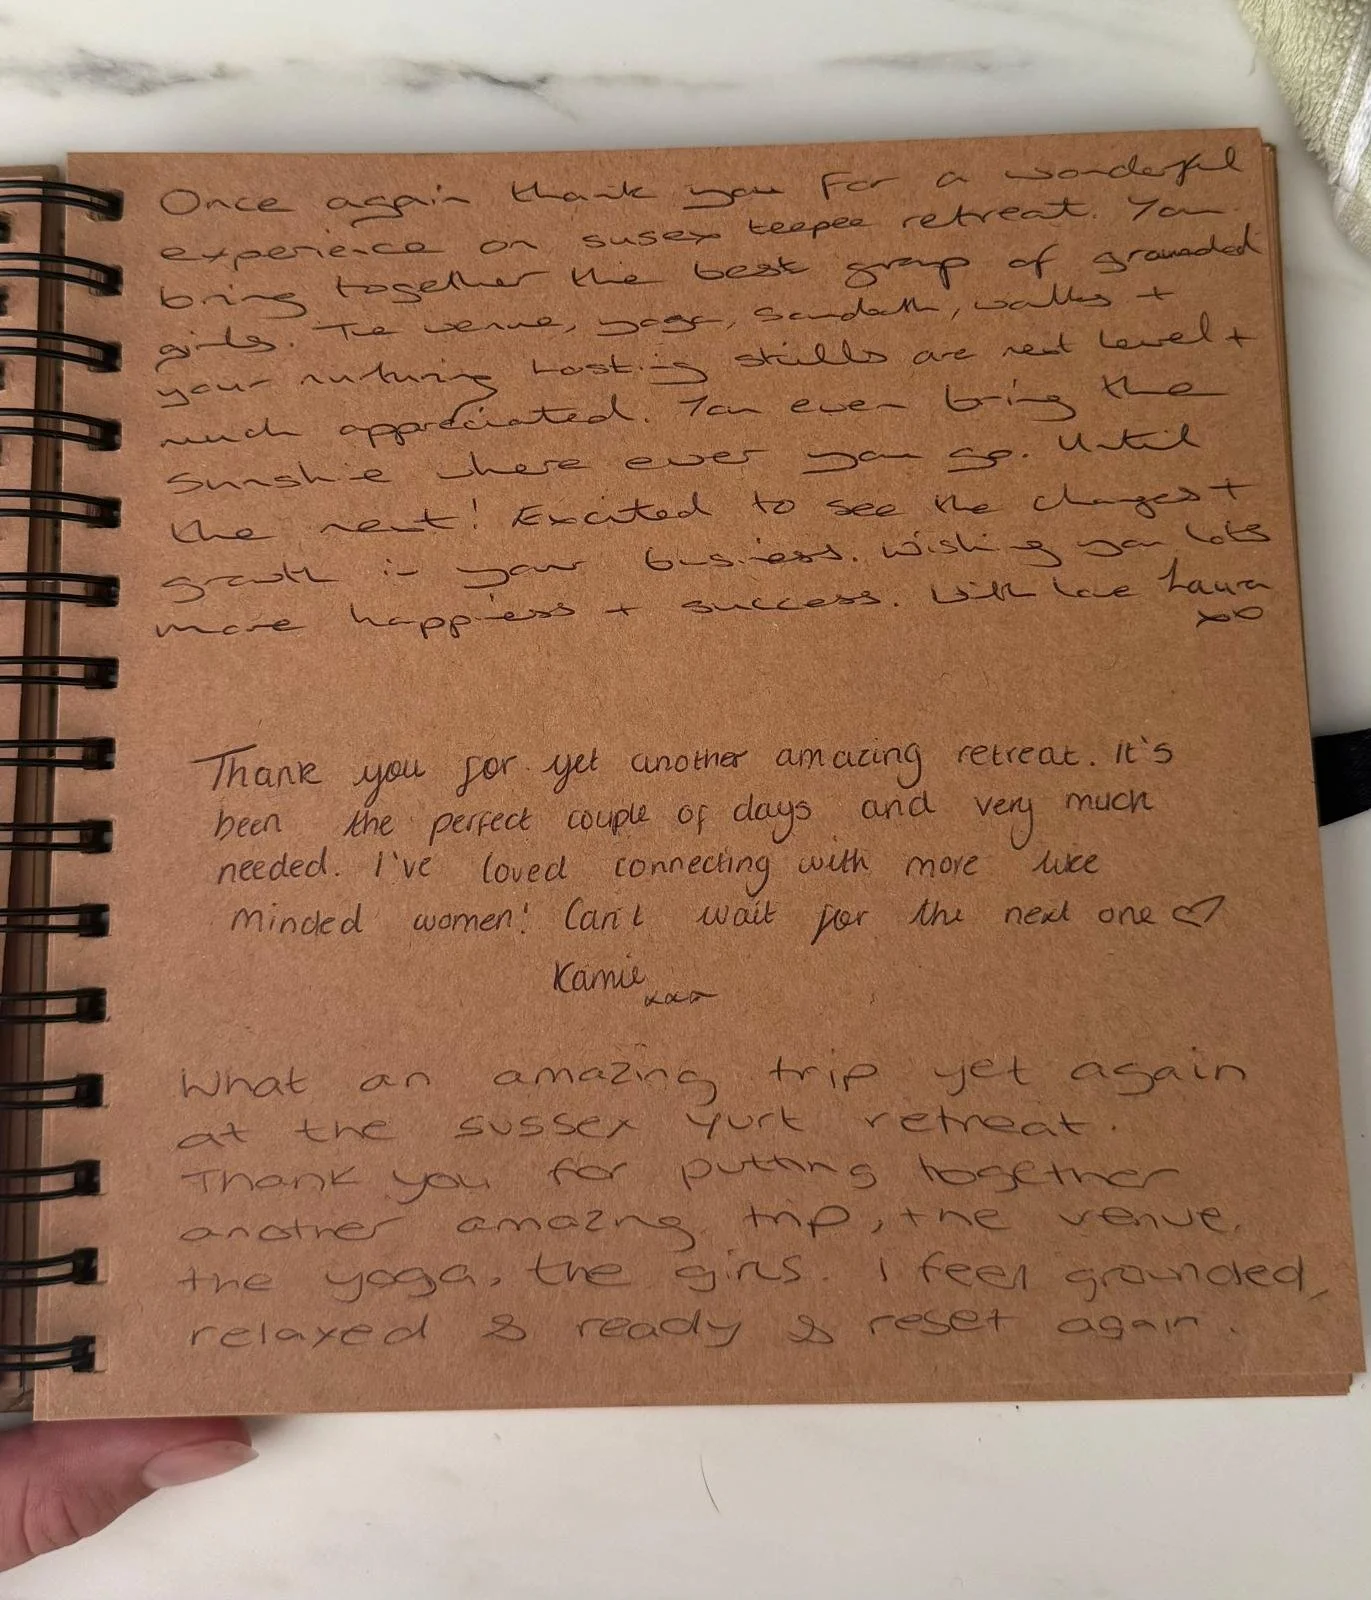 Once again thank you for a wonderful
experience on susex teepee retreat. You
bring together the best group of grounded
girls. The venue, yoga, soundbath, walks +
your nurturing hosting skills are next level +
much appreciated. You even bring the
sunshine where ever you go. Until
the next! Excited to see the changes +
growth in your business. Wishing you lots
more happiness + success. With love Laura
xoo
Thank you for yet another amazing retreat. It's
been the perfect couple of days and very much
needed. I've loved connecting with more like
minded women! Can't wait for the next one ♡
Kamie
xxx
What an amazing trip yet again
at the sussex yurt retreat.
Thank you for putting together
another amazing trip, the venue,
the yoga, the girls. I feel grounded,
relaxed & ready & reset again.